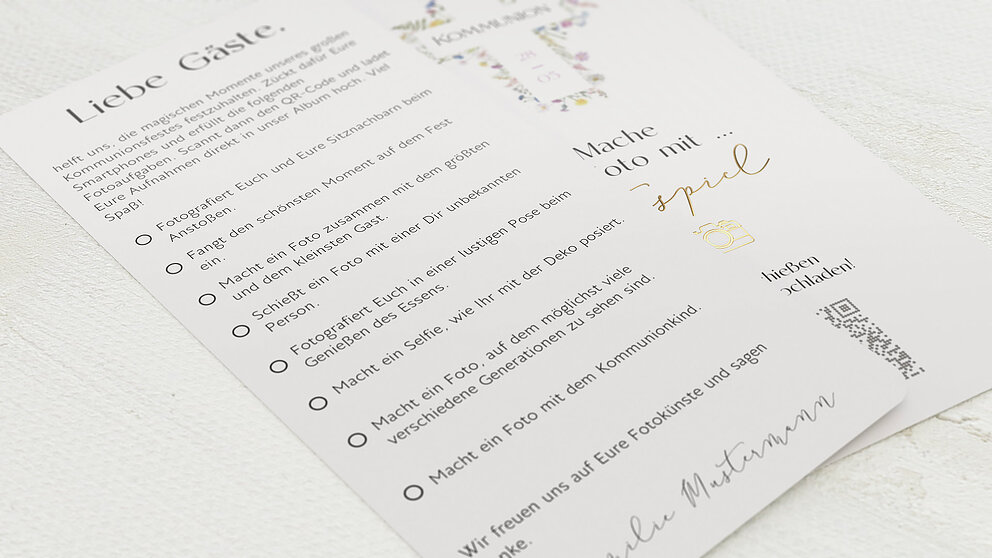 Liebe Gäste,
helft uns, die magischen Momente unseres großen
Kommunionsfestes festzuhalten. Zückt dafür Eure
Smartphones und erfüllt die folgenden
Fotoaufgaben. Scannt dann den QR-Code und ladet
Eure Aufnahmen direkt in unser Album hoch. Viel
Spaß!
Fotografiert Euch und Eure Sitznachbarn beim
Anstoßen.
Fangt den schönsten Moment auf dem Fest
ein.
Macht ein Foto zusammen mit dem größten
und dem kleinsten Gast.
Schießt ein Foto mit einer Dir unbekannten
Person.
Fotografiert Euch in einer lustigen Pose beim
Genießen des Essens.
Macht ein Selfie, wie Ihr mit der Deko posiert.
Macht ein Foto, auf dem möglichst viele
verschiedene Generationen zu sehen sind.
Macht ein Foto mit dem Kommunionkind.
Wir freuen uns auf Eure Fotokünste und sagen
nke.
ilie Mustermann
KOMMUNION
28
05
Mache
oto mit ...
spiel
hießen
ochladen!